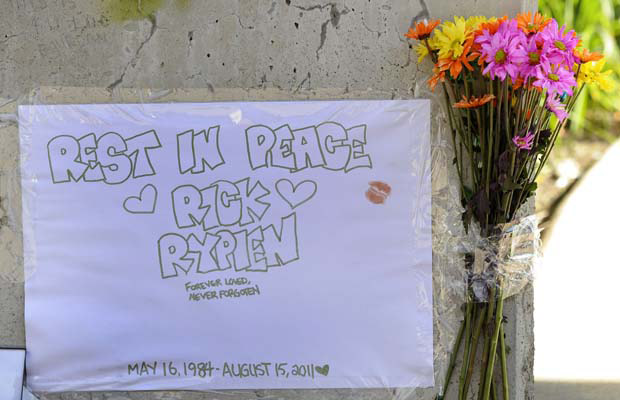 REST IN PEACE
RICK
RYPIEN
FOREVER LOVED,
NEVER FORGOTEN
MAY 16, 1984 - AUGUST 15, 2011